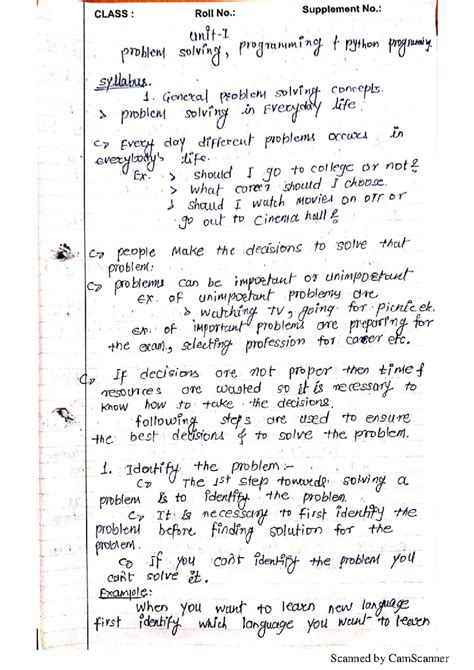 CLASS : Roll No.: Supplement No.:
Unit-I
problem solving, programming & python programing
Syllabus.
1. General problem solving concepts.
> problem solving in Everyday life.
=> Every day different problems occurs in
everybody's life.
Ex. > should I go to college or not?
> what career should I choose.
> shauld I watch movies on OTT or
go out to cinema hall?
=> people make the decisions to solve that
problem.
=> problems can be important or unimportant
Ex. of unimportant problems are
> watching TV, going for picnic etc.
Ex. of important problems are preparing for
the exam, selecting profession for career etc.
=> If decisions are not proper then time &
resources are wasted so it is necessary to
know how to take the decisions.
following steps are used to ensure
the best decisions & to solve the problem.
1. Identify the problem :-
=> The 1st step towards solving a
problem is to identify the problem.
=> It is necessary to first identify the
problem before finding solution for the
problem.
=> If you can't identify the problem you
can't solve it.
Example:
When you want to learn new language
first identify which language you want to learn
Scanned by CamScanner